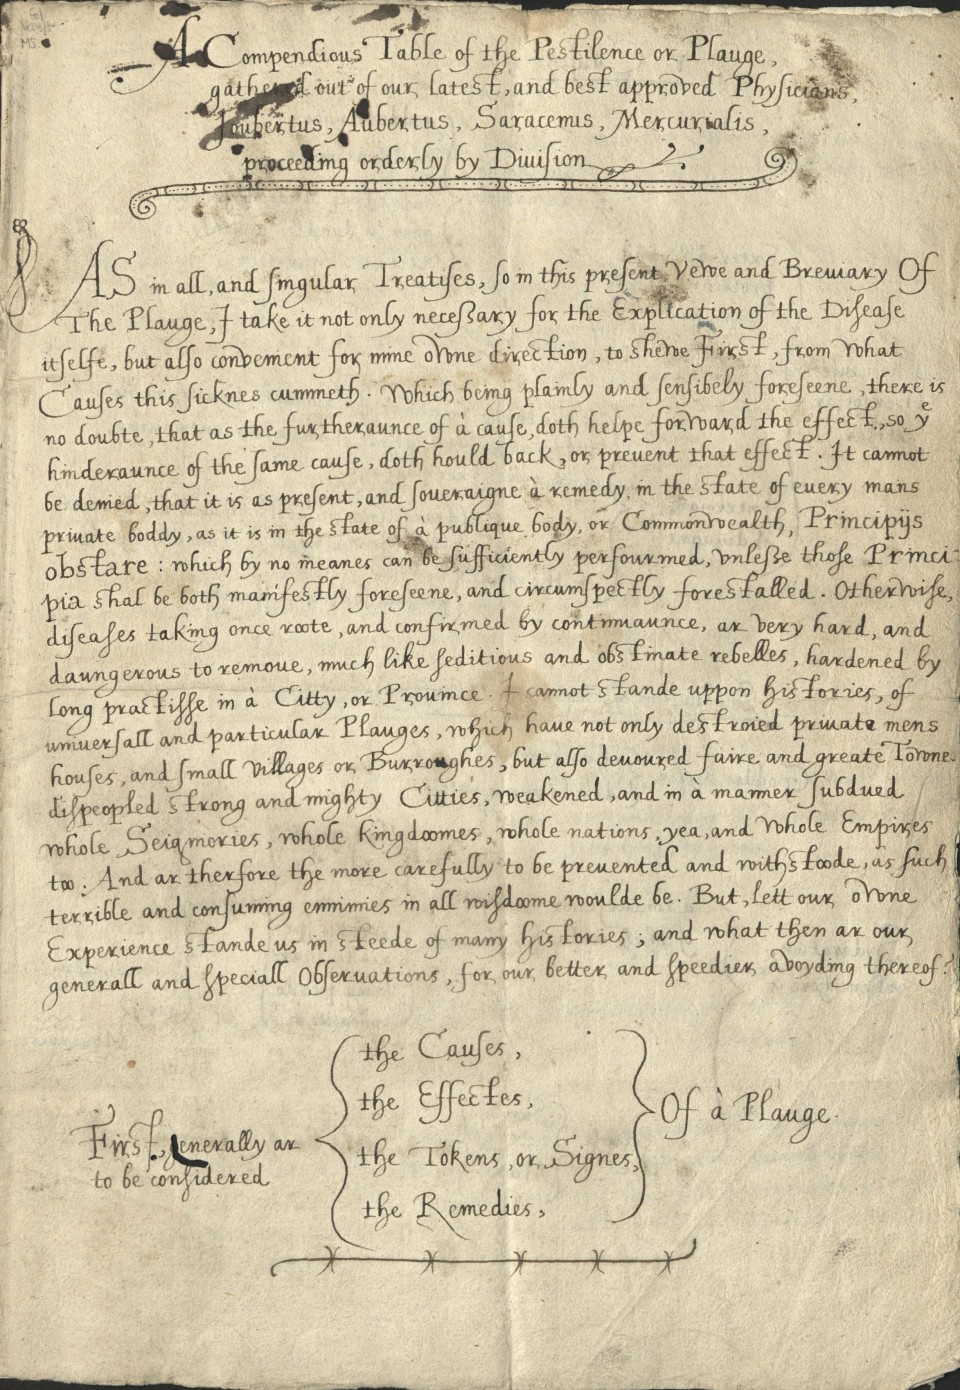 A Compendious Table of the Pestilence or Plauge,
gathered out of our latest, and best approved Physicians,
Joubertus, Aubertus, Saracenus, Mercurialis,
proceeding orderly by Diuision
AS in all, and singular Treatises, so in this present Vewe and Breuiary Of
The Plauge, I take it not only necessary for the Explication of the Disease
itselfe, but also convenient for mine owne direction, to shewe First, from what
Causes this sicknes cummeth. Which being plainly and sensibely foreseene, there is
no doubte, that as the furtheraunce of à cause, doth helpe forward the effect, so yᵉ
hinderaunce of the same cause, doth hould back, or prevent that effect. It cannot
be denied, that it is as present, and soueraigne à remedy in the state of euery mans
priuate boddy, as it is in the state of à publique body, or Commonwealth, Principijs
obstare: which by no meanes can be sufficiently perfourmed, vnlesse those Princi-
pia shal be both manifestly foreseene, and circumspectly forestalled. Otherwise,
diseases taking once roote, and confirmed by continuaunce, ar very hard, and
daungerous to remove, much like seditious and obstinate rebelles, hardened by
long practisse in à Citty, or Prouince. I cannot stande uppon histories, of
uniuersall and particular Plauges, which have not only destroied private mens
houses, and small villages or Burroughes, but also deuoured faire and greate Towne
dispeopled strong and mighty Citties, weakened, and in à manner subdued
whole Seignories, whole kingdoomes, whole nations, yea, and whole Empires
too: And ar therfore the more carefully to be prevented and withstoode, as such
terrible and consuming ennimies in all wisdoome woulde be. But, lett our owne
Experience stande us in steede of many histories; and what then ar our
generall and speciall Observations, for our better and speedier avoyding thereof?
First, generally ar
to be considered
the Causes,
the Effectes,
the Tokens, or Signes,
the Remedies,
Of à Plauge.